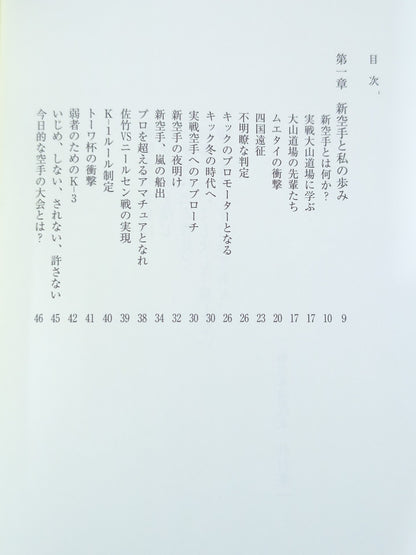 目次
第一章 新空手と私の歩み 9
新空手とは何か? 10
実戦大山道場に学ぶ 17
大山道場の先輩たち 17
ムエタイの衝撃 20
四国遠征 23
不明瞭な判定 26
キックのプロモーターとなる 26
キック冬の時代へ 30
実戦空手へのアプローチ 30
新空手の夜明け 32
新空手、嵐の船出 34
プロを超えるアマチュアとなれ 38
佐竹VSニールセン戦の実現 39
K-1ルール制定 40
トーワ杯の衝撃 41
弱者のためのK-3 42
いじめ、しない、されない、許さない 45
今日的な空手の大会とは? 46